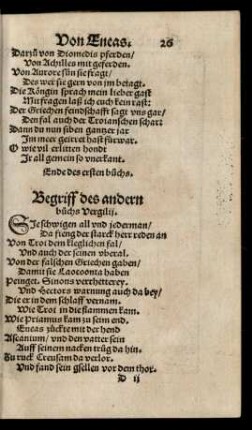 Von Eneas. 26
Darzů von Diomedis pferden/
Von Achilles mit geferden.
Von Aurore sůn sie fragt/
Des wer sie gern von jm betagt.
Die Köngin sprach mein lieber gast
Mit fragen laß ich euch kein rast:
Der Griechen feindschafft sagt vns gar/
Den fal auch der Troianschen schar:
Dann du nun siben gantzer jar
Im meer geirret hast fürwar.
O wie vil erlitten hondt
Jr all gemein so vnerkant.
Ende des ersten bůchs.
Begriff des andern
bůchs Vergilij.
SJe schwigen all vnd jederman/
Da fieng der starck herr reden an
Von Troi dem kleglichen fal/
Vnd auch der seinen vberal.
Von der falschen Griechen gaben/
Damit sie Laocoonta haben
Peinget. Sinons verrhetterey.
Vnd Hectors warnung auch da bey/
Die er in dem schlaff vernam.
Wie Troi in die flammen kam.
Wie Priamus kam zu seim end.
Eneas zückte mit der hend
Ascanium/ vnd den vatter sein
Auff seinem nacken trůg da hin.
Zu ruck Creusam da verlor.
Vnd fand sein gsellen vor dem thor.
D ij